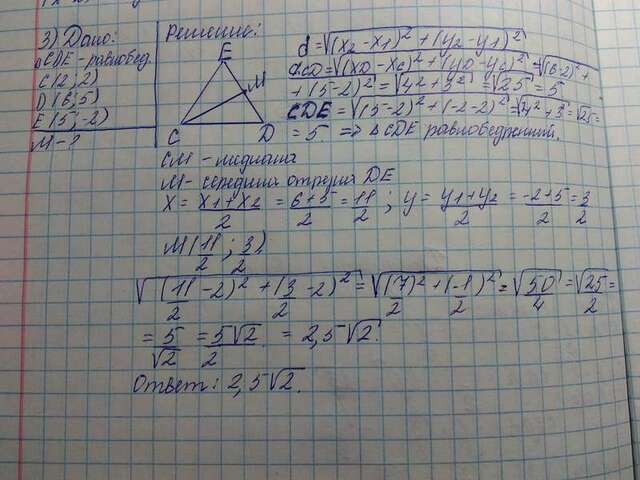 3) Дано:
△CDE - равнобед.
C (2; 2)
D (6; 5)
E (5; -2)
M - ?
Решение:
E
M
C
D
d = √(x₂ - x₁)² + (y₂ - y₁)²
dCD = √(xD - xC)² + (yD - yC)² = √(6-2)² +
+ (5-2)² = √4² + 3² = √25 = 5
CDE = √(5-2)² + (-2-2)² = √4² + 3 = √25 =
= 5. => △CDE равнобедренный.
CM - медиана
M - середина отрезка DE
X = x₁+x₂/2 = 6+5/2 = 11/2 ; y = y₁+y₂/2 = -2+5/2 = 3/2
M (11/2 ; 3/2)
√(11/2 - 2)² + (3/2 - 2)² = √(7/2)² + (-1/2)² = √50/4 = √25/2 =
= 5/√2 = 5√2/2 = 2,5√2.
Ответ: 2,5√2.